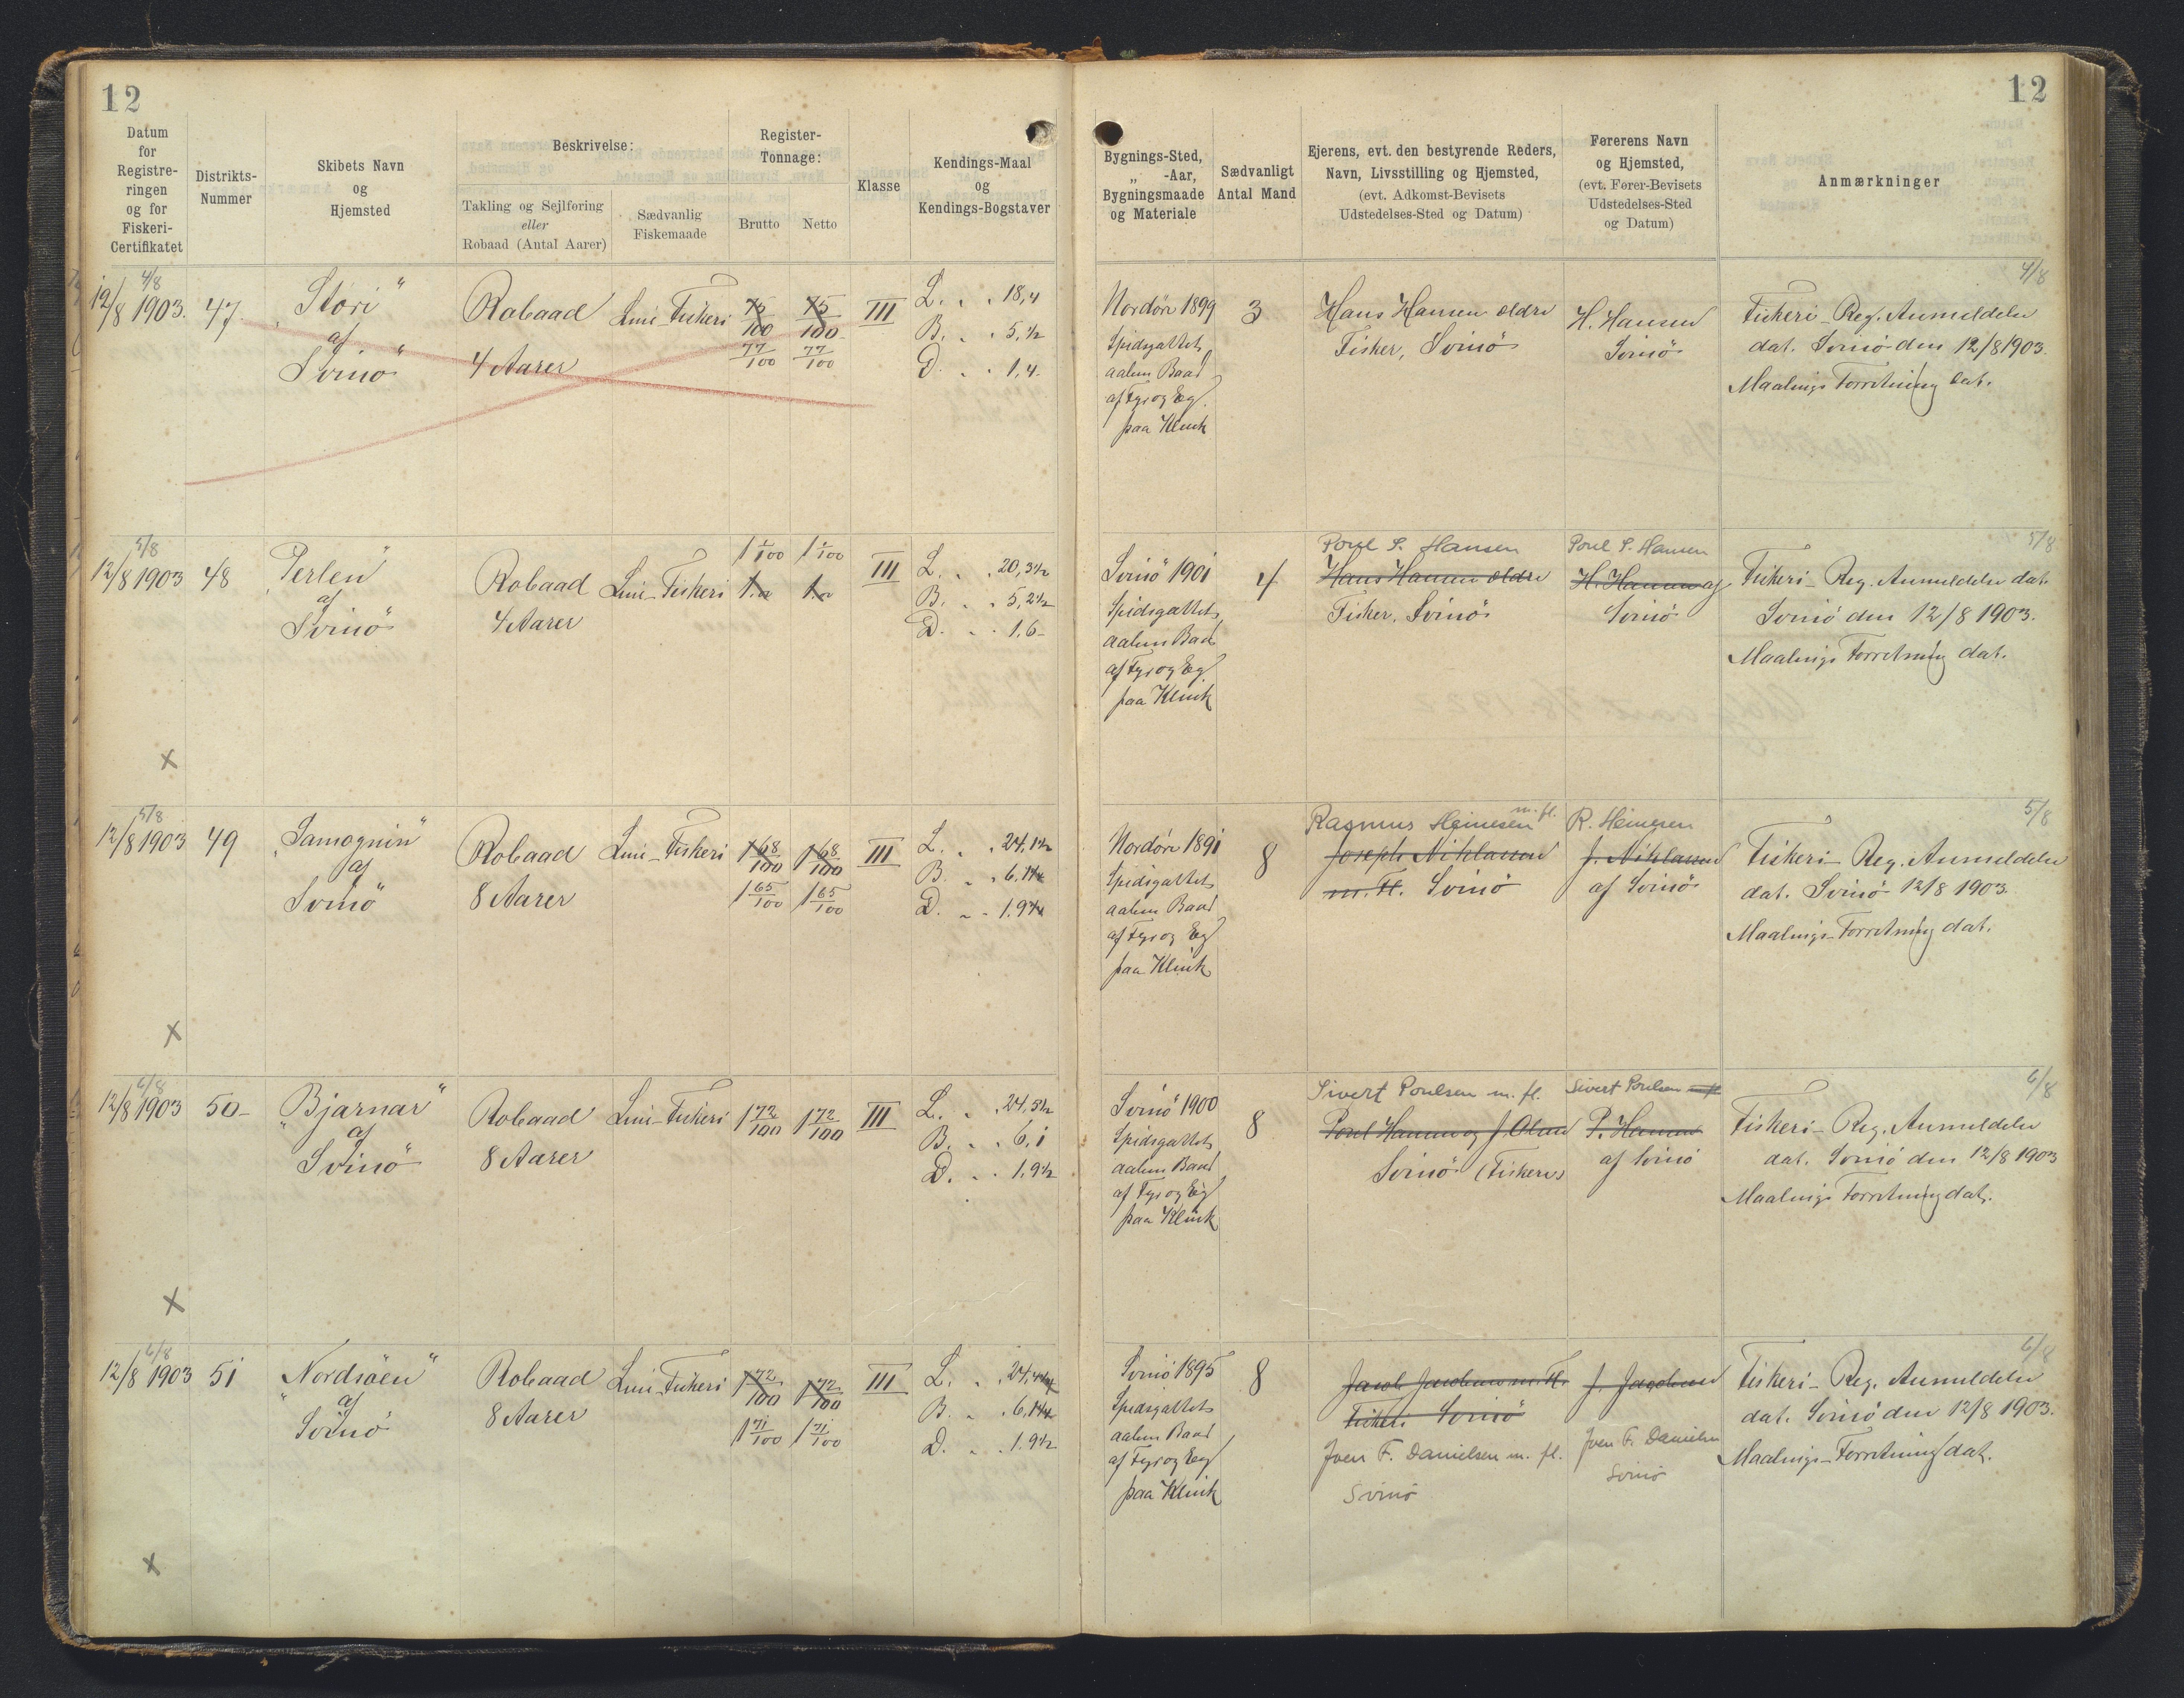 12
12
Datum
for
Registre-
ringen
og for
Fiskeri-
Certifikatet
Distrikts-
Nummer
Skibets Navn
og
Hjemsted
Beskrivelse:
Takling og Sejlføring
eller
Robaad (Antal Aarer)
Sædvanlig
Fiskemaade
Register-
Tonnage:
Brutto
Netto
Klasse
Kendings-Maal
og
Kendings-Bogstaver
Bygnings-Sted,
„ -Aar,
Bygningsmaade
og Materiale
Sædvanligt
Antal Mand
Ejerens, evt. den bestyrende Reders,
Navn, Livsstilling og Hjemsted,
(evt. Adkomst-Bevisets
Udstedelses-Sted og Datum)
Førerens Navn
og Hjemsted,
(evt. Fører-Bevisets
Udstedelses-Sted
og Datum)
Anmærkninger
4/8
12/8 1903.
47.
„Stori“
af
Svinö
Robaad
4 Aarer
Line-Fiskeri
75/100
75/100
77/100
77/100
III
L. „ „ 18,4
B. „ „ 5,½
D. „ „ 1,4.
Nordöre 1899
Spidsgattet,
aaben Baad
af Fyr og Eg
paa Klink
3
Hans Hansen ældre
Fisker, Svinö
H. Hansen
Svinö
4/8
Fiskeri-Reg. Anmeldelse
dat. Svinö den 12/8 1903.
Maalings Forretning dat.
5/8
12/8 1903
48
„Perlen“
af
Svinö
Robaad
4 Aarer
Line-Fiskeri
III
L. „ „ 20,3½
B. „ „ 5,2½
D. „ „ 1,6-
Svinö 1901
Spidsgattet,
aaben Baad
af Fyr og Eg
paa Klink
4
Poul P. Hansen
Hans Hansen ældre
Fisker, Svinö
Poul P. Hansen
H. Hansen af
Svinö
5/8
Fiskeri-Reg. Anmeldelse dat.
Svinö den 12/8 1903.
Maalings Forretning dat.
x
5/8
12/8 1903
49
„Samognin“
af
Svinö
Robaad
8 Aarer
Line-Fiskeri
1 68/100
1 68/100
1 65/100
1 65/100
III
L. „ „ 24,1½
B. „ „ 6,1¼
D. „ „ 1,9¼
Nordöre 1891
Spidsgattet,
aaben Baad
af Fyr og Eg
paa Klink
8
Rasmus Heinesen m. fl.
Joseph Niklassen
m. Fl. Svinö
R. Heinesen
J. Niklassen
af Svinö
5/8
Fiskeri-Reg. Anmeldelse
dat. Svinö 12/8 1903
Maalings-Forretning dat.
x
6/8
12/8 1903
50-
„Bjarnar“
af
Svinö
Robaad
8 Aarer
Line-Fiskeri
1 72/100
1 72/100
III
L. „ „ 24,5½
B. „ „ 6,1
D. „ „ 1,9½
Svinö 1900
Spidsgattet,
aaben Baad
af Fyr og Eg
paa Klink
8
Sivert Poulsen m. fl.
Poul Hansen og J. Olsen
Svinö (Fiskere)
Sivert Poulsen m. fl
P. Hansen
af Svinö
6/8
Fiskeri-Reg. Anmeldelse
dat. Svinö den 12/8 1903
Maalings Forretning dat.
x
6/8
12/8 1903
51
„Nordsöen“
af
Svinö
Robaad
8 Aarer
Line-Fiskeri
1 72/100
1 72/100
1 71/100
1 71/100
III
L. „ „ 24,4¼
B. „ „ 6,1¼
D. „ „ 1,9½
Svinö 1895
Spidsgattet,
aaben Baad
af Fyr og Eg
paa Klink
8
Jacob Jacobsen m. Fl.
Fiskeri Svinö
Joen F. Danielsen m. fl.
Svinö
J. Jacobsen
Joen F. Danielsen
Svinö
6/8
Fiskeri-Reg. Anmeldelse
dat. Svinö den 12/8 1903.
Maalings-Forretning dat.
x